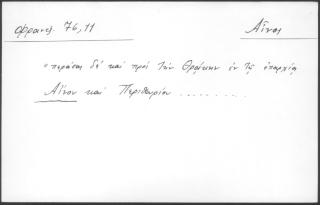 Φραντζ. 76,11
Αἶνος
"περάσας δὲ καὶ πρὸς τὴν Θρᾴκην ἐν τῇ ἐπαρχίᾳ
Αἴνου καὶ Περιθωρίου ........